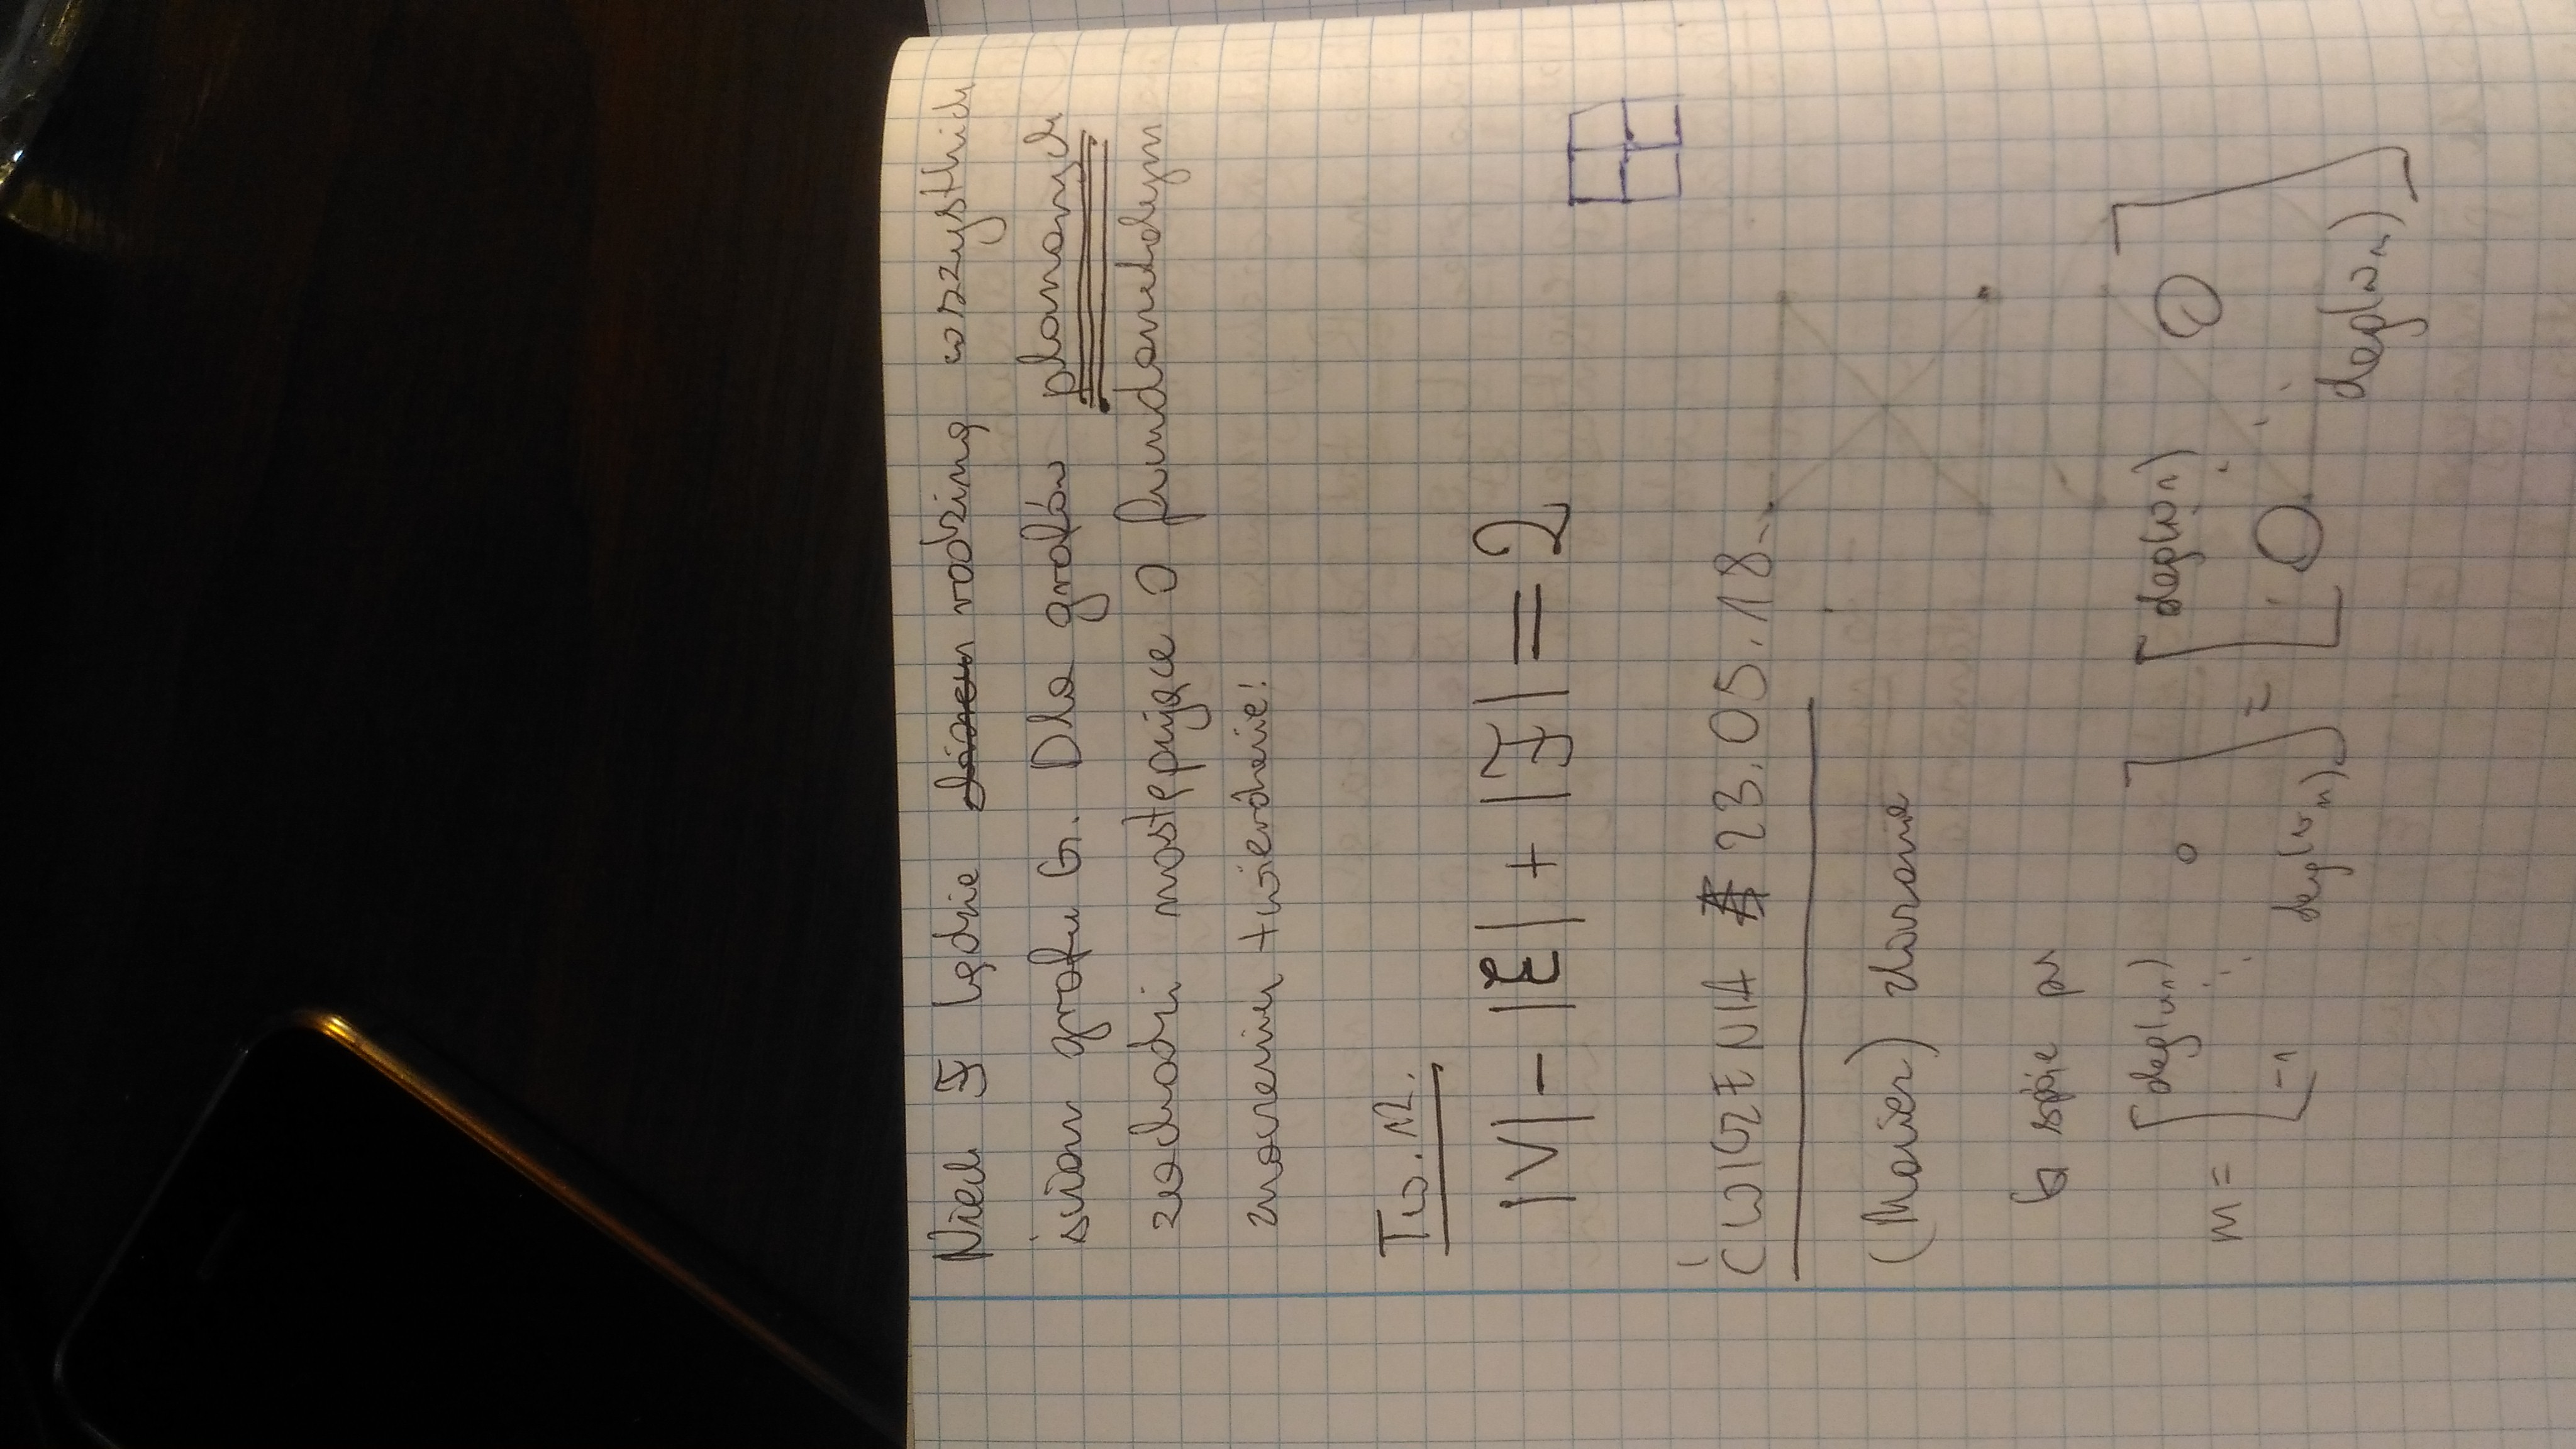 Niech F będzie rodziną wszystkich
ścian grafu G. Dla grafów planarnych
zachodzi następujące o fundametalym
znaczeniu twierdzenie:
Tw. 12.
|V| - |E| + |F| = 2
ĆWICZENIA 23.05.18
(Macierz)
G spóje
m = [deg(v1) 0 -1 deg(vn)] = [deg(v1) 0 0 deg(vn)]